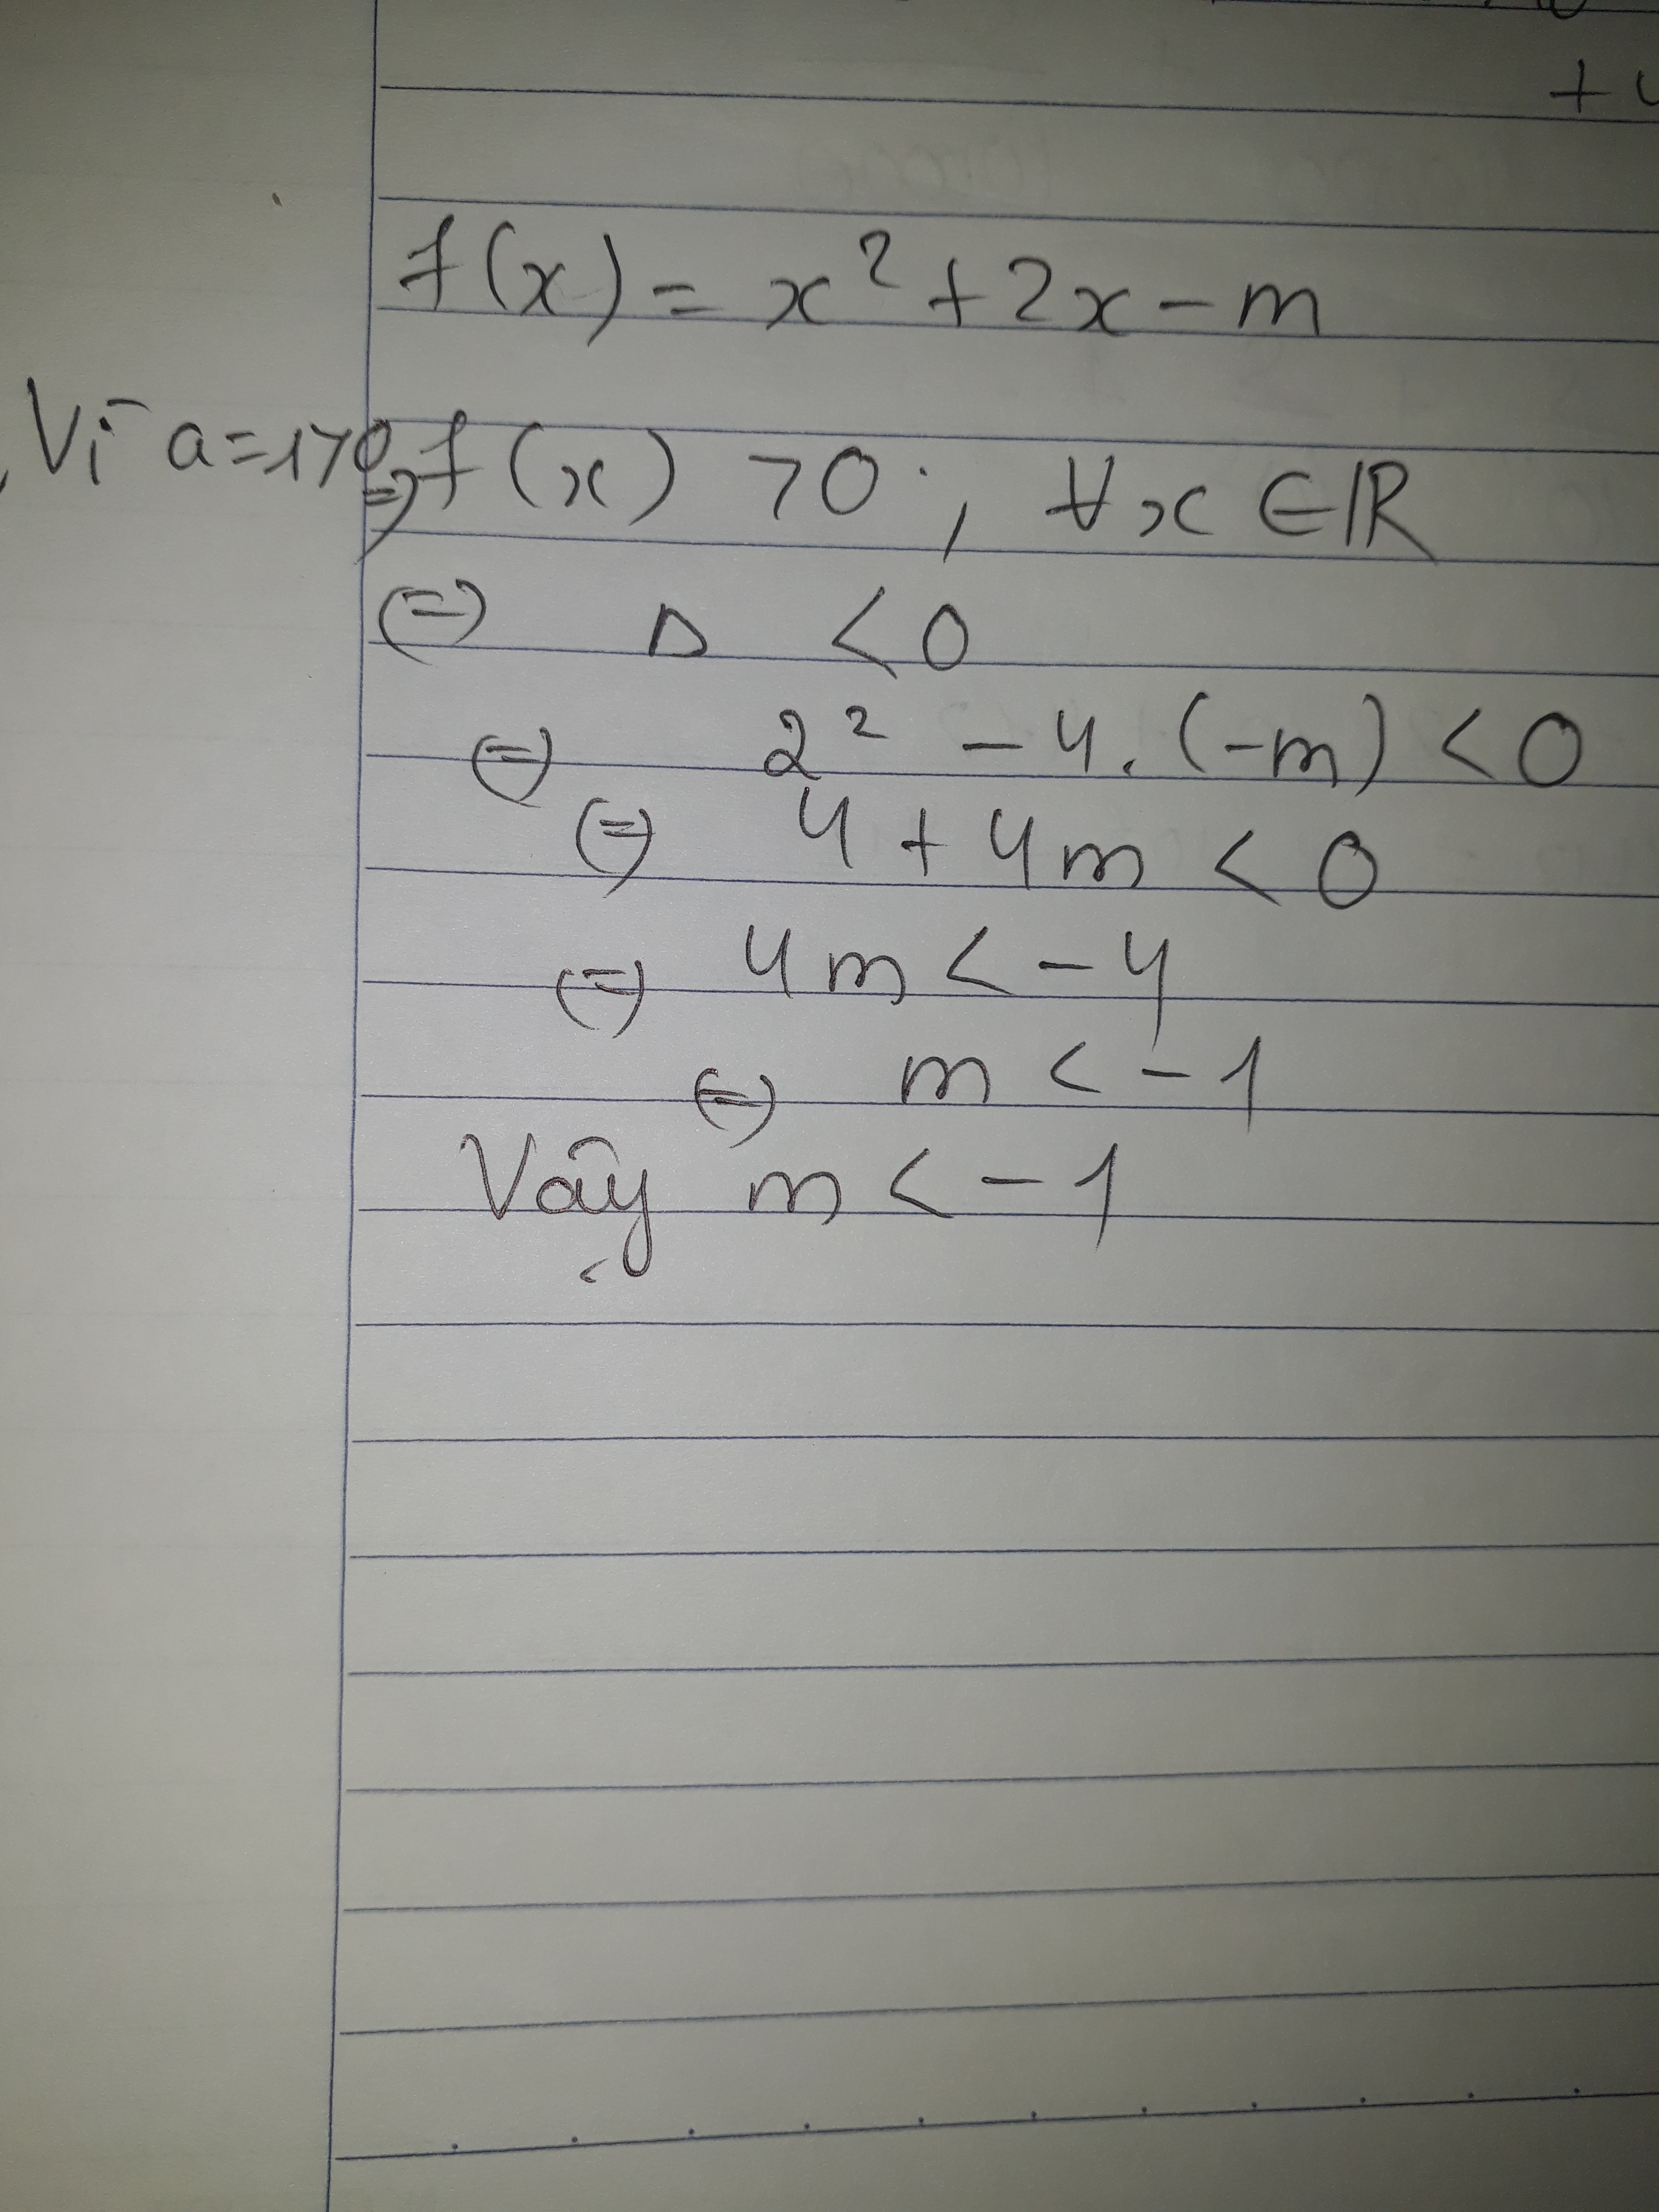 + 4
f(x) = x² + 2x - m
Vì a=1>0 => f(x) >0 ; ∀x ∈ ℝ
(=) Δ < 0
(=) 2² - 4. (-m) < 0
(=) 4 + 4m < 0
(=) 4m < - 4
(=) m < - 1
Vậy m < - 1